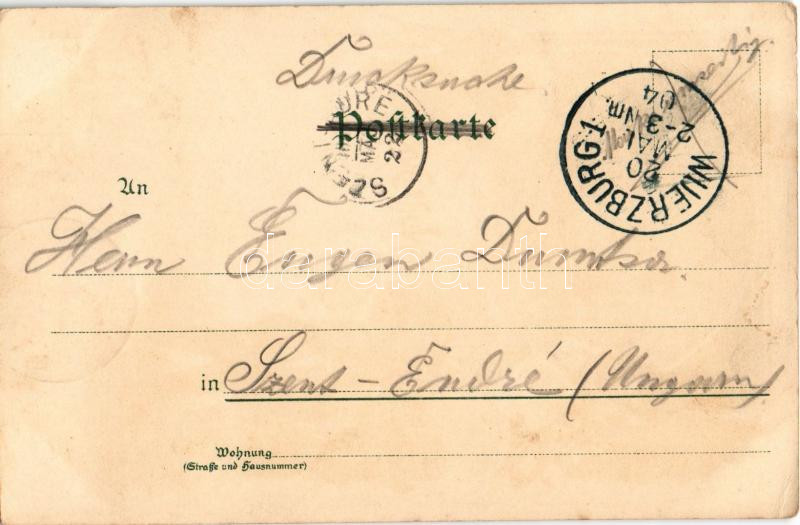 Drucksache
Postkarte
SZENTENDRE
MÁJ
22
WUERZBURG 1
20
MAI
2-3 Nm.
04
An
Herrn Eugen Dumtsa
darabanth
in Szent-Endré (Ungarn)
Wohnung
(Straße und Hausnummer)